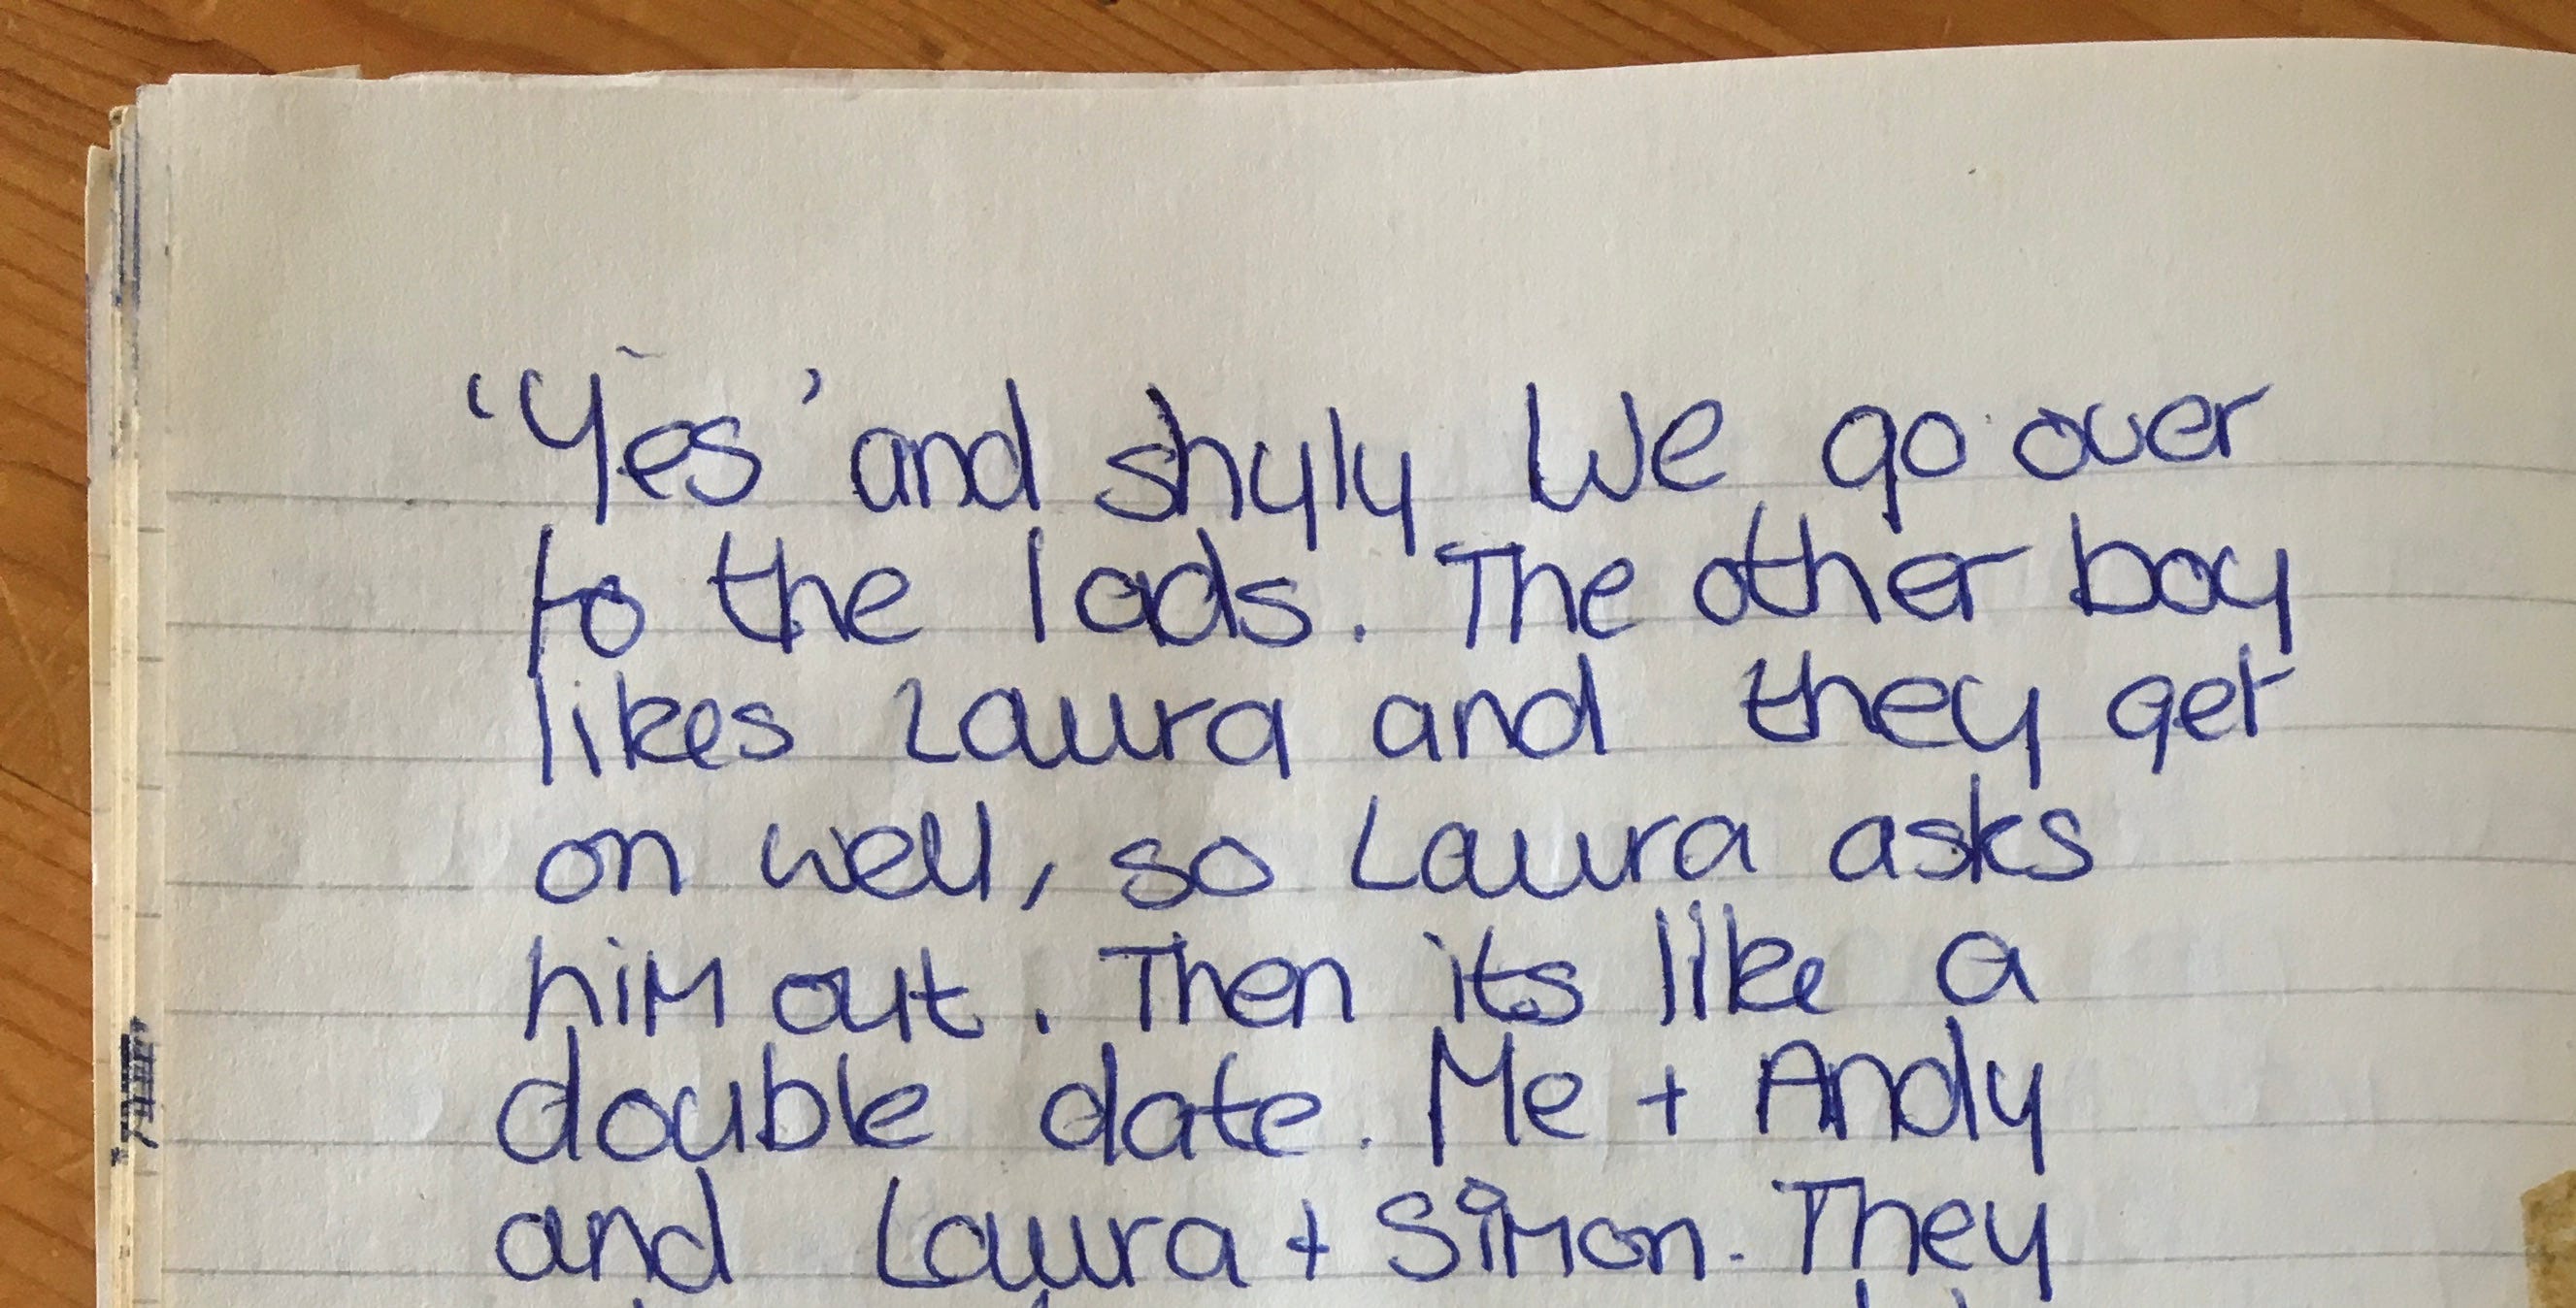 'Yes' and shyly We go over
to the lads. The other boy
likes Laura and they get
on well, so Laura asks
him out. Then its like a
double date. Me + Andy
and Laura + Simon. They